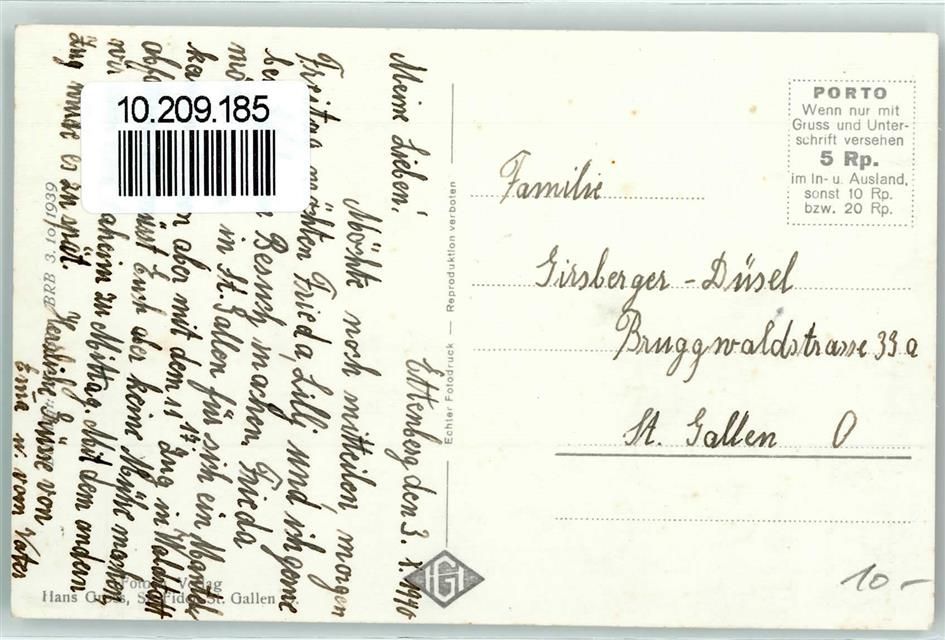 Ettenberg den 3. X. 1940
Meine Lieben!
Möchte noch mitteilen, morgen
Freitag möchten Frieda, Lilly und ich gerne
Besuch machen, Frieda
in St. Gallen für sich ein Mantel
aber mit dem 11 Zug in
Euch aber keine Mühe machen
daheim zu Mittag. Mit dem andern
Zug wurde es zu spät.
Herzliche Grüsse von
u. vom Vater
10.209.185
BRB 3. 10/1939
Foto Verlag
Hans Gross, St. Fiden-St. Gallen
Echter Fotodruck — Reproduktion verboten
HGF
PORTO
Wenn nur mit
Gruss und Unter-
schrift versehen
5 Rp.
im In- u. Ausland,
sonst 10 Rp.
bzw. 20 Rp.
Familie
Girsberger - Düsel
Bruggwaldstrasse 39a
St. Gallen O
10.-